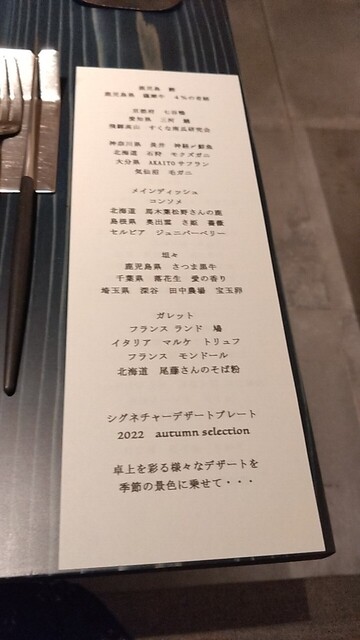 鹿児島 鰹
鹿児島県 薩摩牛 4%の奇跡
京都府 七谷鴨
愛知県 三河 鰻
飛騨高山 すくな南瓜研究会
神奈川県 長井
北海道 石狩 モクズガニ
大分県 AKAITOサフラン
気仙沼 毛ガニ
メインディッシュ
コンソメ
北海道 馬木葉松野さんの鹿
島根県 奥出雲 さ姫 薔薇
セルビア ジュニパーベリー
坦々
鹿児島県 さつま黒牛
千葉県 落花生 愛の香り
埼玉県 深谷 田中農場 宝玉卵
ガレット
フランス ランド 鳩
イタリア マルケ トリュフ
フランス モンドール
北海道 尾藤さんのそば粉
シグネチャーデザートプレート
2022 autumn selection
卓上を彩る様々なデザートを
季節の景色に乗せて・・・